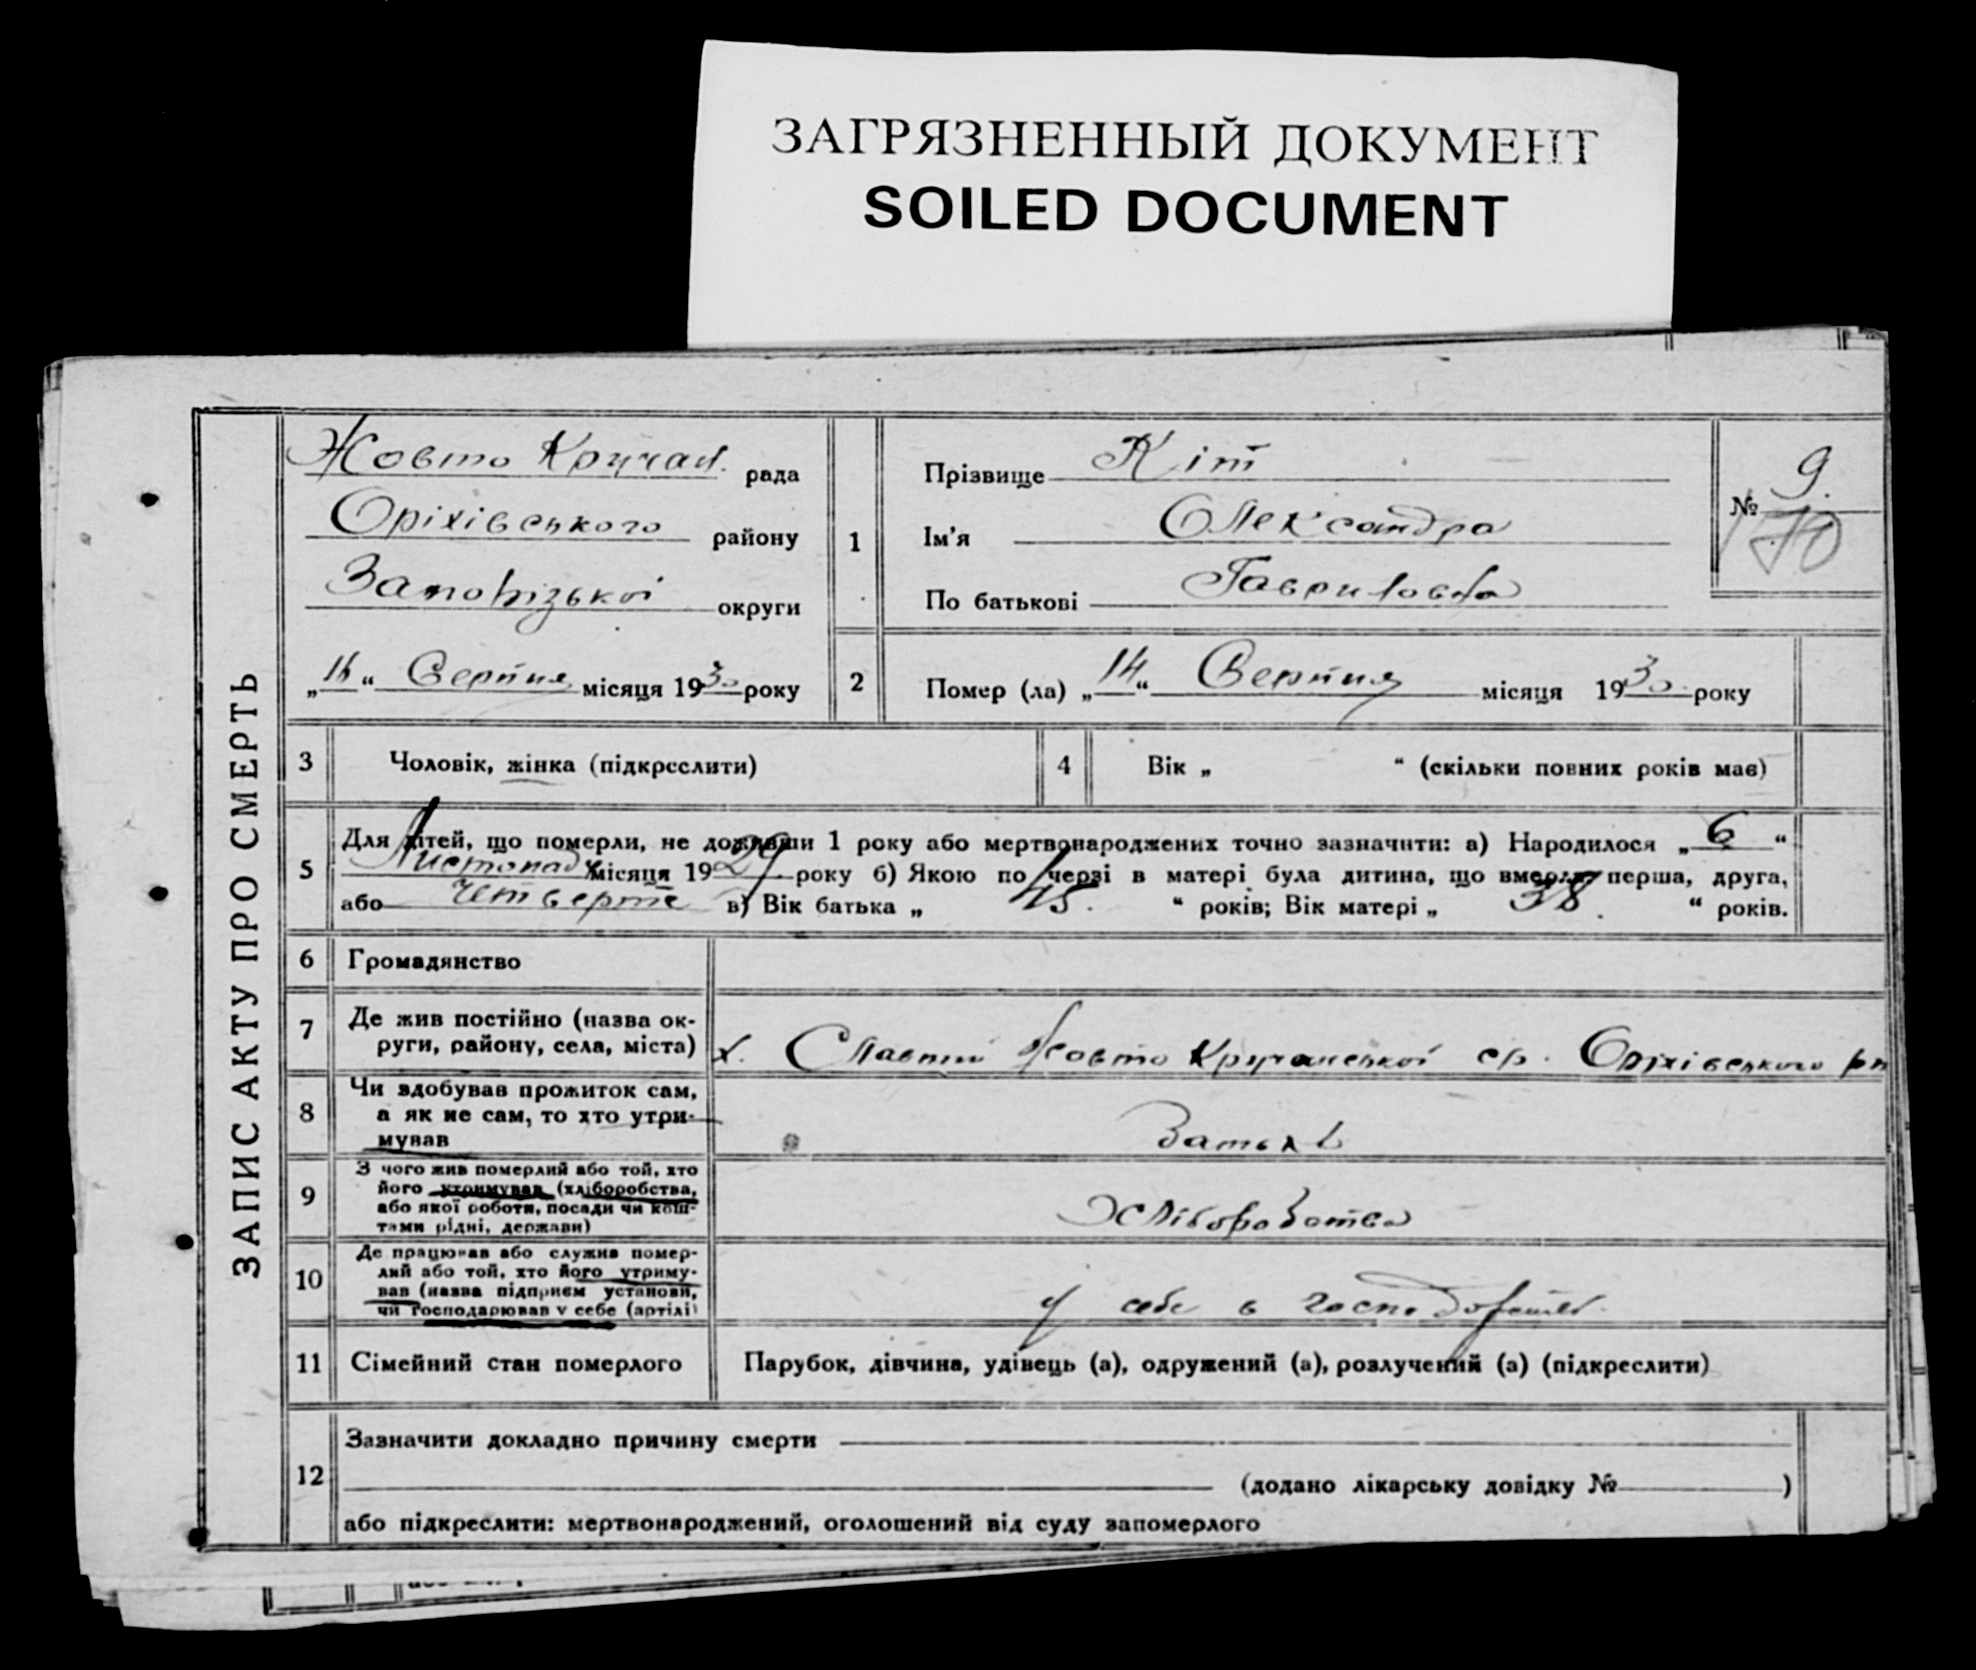 ЗАГРЯЗНЕННЫЙ ДОКУМЕНТ
SOILED DOCUMENT
ЗАПИС АКТУ ПРО СМЕРТЬ
Жовто Кручан. рада
Оріхівського району
Запорізької округи
„16“ Серпня місяця 1930 року
1
Прізвище Кіт
Ім'я Олександра
По батькові Гавриловна
№ 9.
170
2
Помер (ла) „14“ Серпня місяця 1930 року
3 Чоловік, жінка (підкреслити)
4 Вік „ “ (скільки повних років має)
5 Для дітей, що померли, не доживши 1 року або мертвонароджених точно зазначити: а) Народилося „6“
Листопаду місяця 1929 року б) Якою по черзі в матері була дитина, що вмерла: перша, друга,
або четверте в) Вік батька „45.“ років; Вік матері „38.“ років.
6 Громадянство
7 Де жив постійно (назва ок-
руги, району, села, міста) х. Жовто Кручанської с/р. Оріхівського рн
8 Чи здобував прожиток сам,
а як не сам, то хто утри-
мував
9 З чого жив померлий або той, хто
його утримував (хліборобства,
або якої роботи, посади чи кош-
тами рідні, держави) Хліборобства
10 Де працював або служив помер-
лий або той, хто його утриму-
вав (назва підприєм установи,
чи господарював у себе (артілі) у себе в господарстві.
11 Сімейний стан померлого Парубок, дівчина, удівець (а), одружений (а), розлучений (а) (підкреслити)
12 Зазначити докладно причину смерти
(додано лікарську довідку № )
або підкреслити: мертвонароджений, оголошений від суду запомерлого